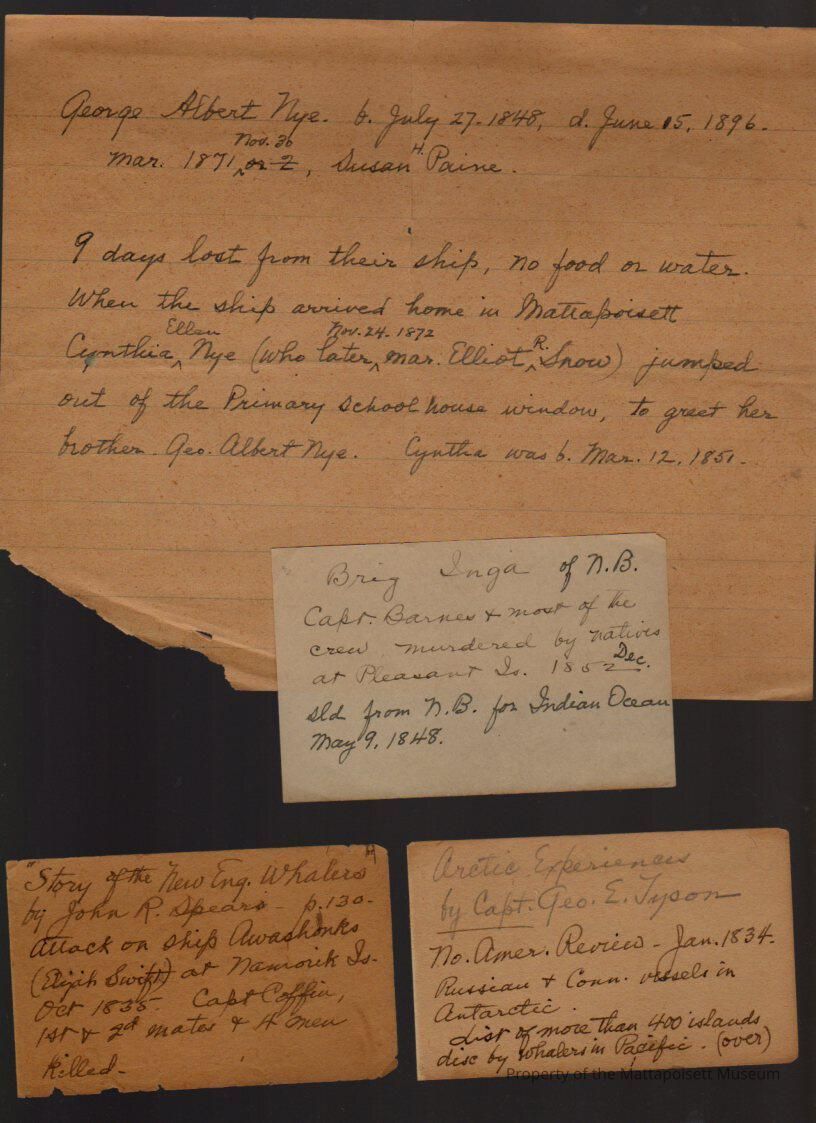 George Albert Nye. b. July 27-1848, d. June 15, 1896.
Nov. 30
mar. 1871, or 2, Susan H. Paine.
9 days lost from their ship, no food or water.
When the ship arrived home in Mattapoisett
Ellen Nov. 24. 1872
Cynthia Nye (who later mar. Elliot R. Snow) jumped
out of the Primary School house window, to greet her
brother Geo. Albert Nye. Cyntha was b. Mar. 12, 1851.
Brig Inga of N.B.
Capt. Barnes + most of the
crew murdered by natives
at Pleasant Is. 1852 Dec.
sld from N.B. for Indian Ocean
May 9, 1848.
"Story of the New Eng. Whalers"
by John R. Spears - p.130-
Attack on ship Awashonks
(Elijah Swift) at Namorik Is-
Oct 1835. Capt Coffin,
1st + 2d mates + 4 men
killed-
Arctic Experiences
by Capt. Geo. E. Tyson
No. Amer. Review - Jan. 1834-
Russian + Conn. vessels in
Antarctic.
List of more than 400 islands
disc by whalers in Pacific. (over)
Property of the Mattapoisett Museum